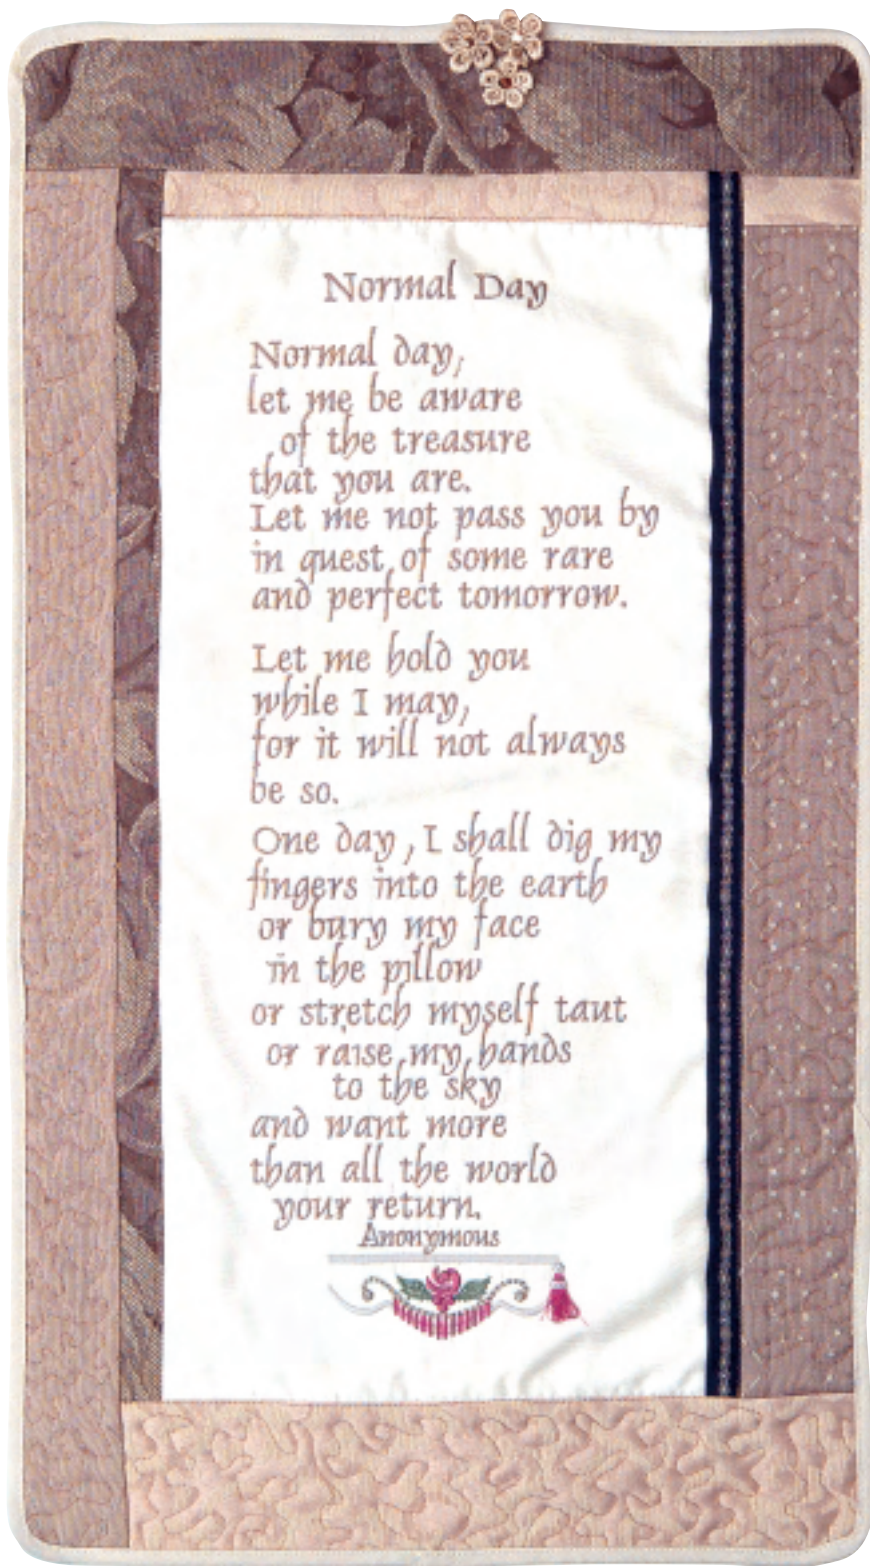 Normal Day
Normal day,
let me be aware
of the treasure
that you are.
Let me not pass you by
in quest of some rare
and perfect tomorrow.
Let me hold you
while I may,
for it will not always
be so.
One day, I shall dig my
fingers into the earth
or bury my face
in the pillow
or stretch myself taut
or raise my hands
to the sky
and want more
than all the world
your return.
Anonymous